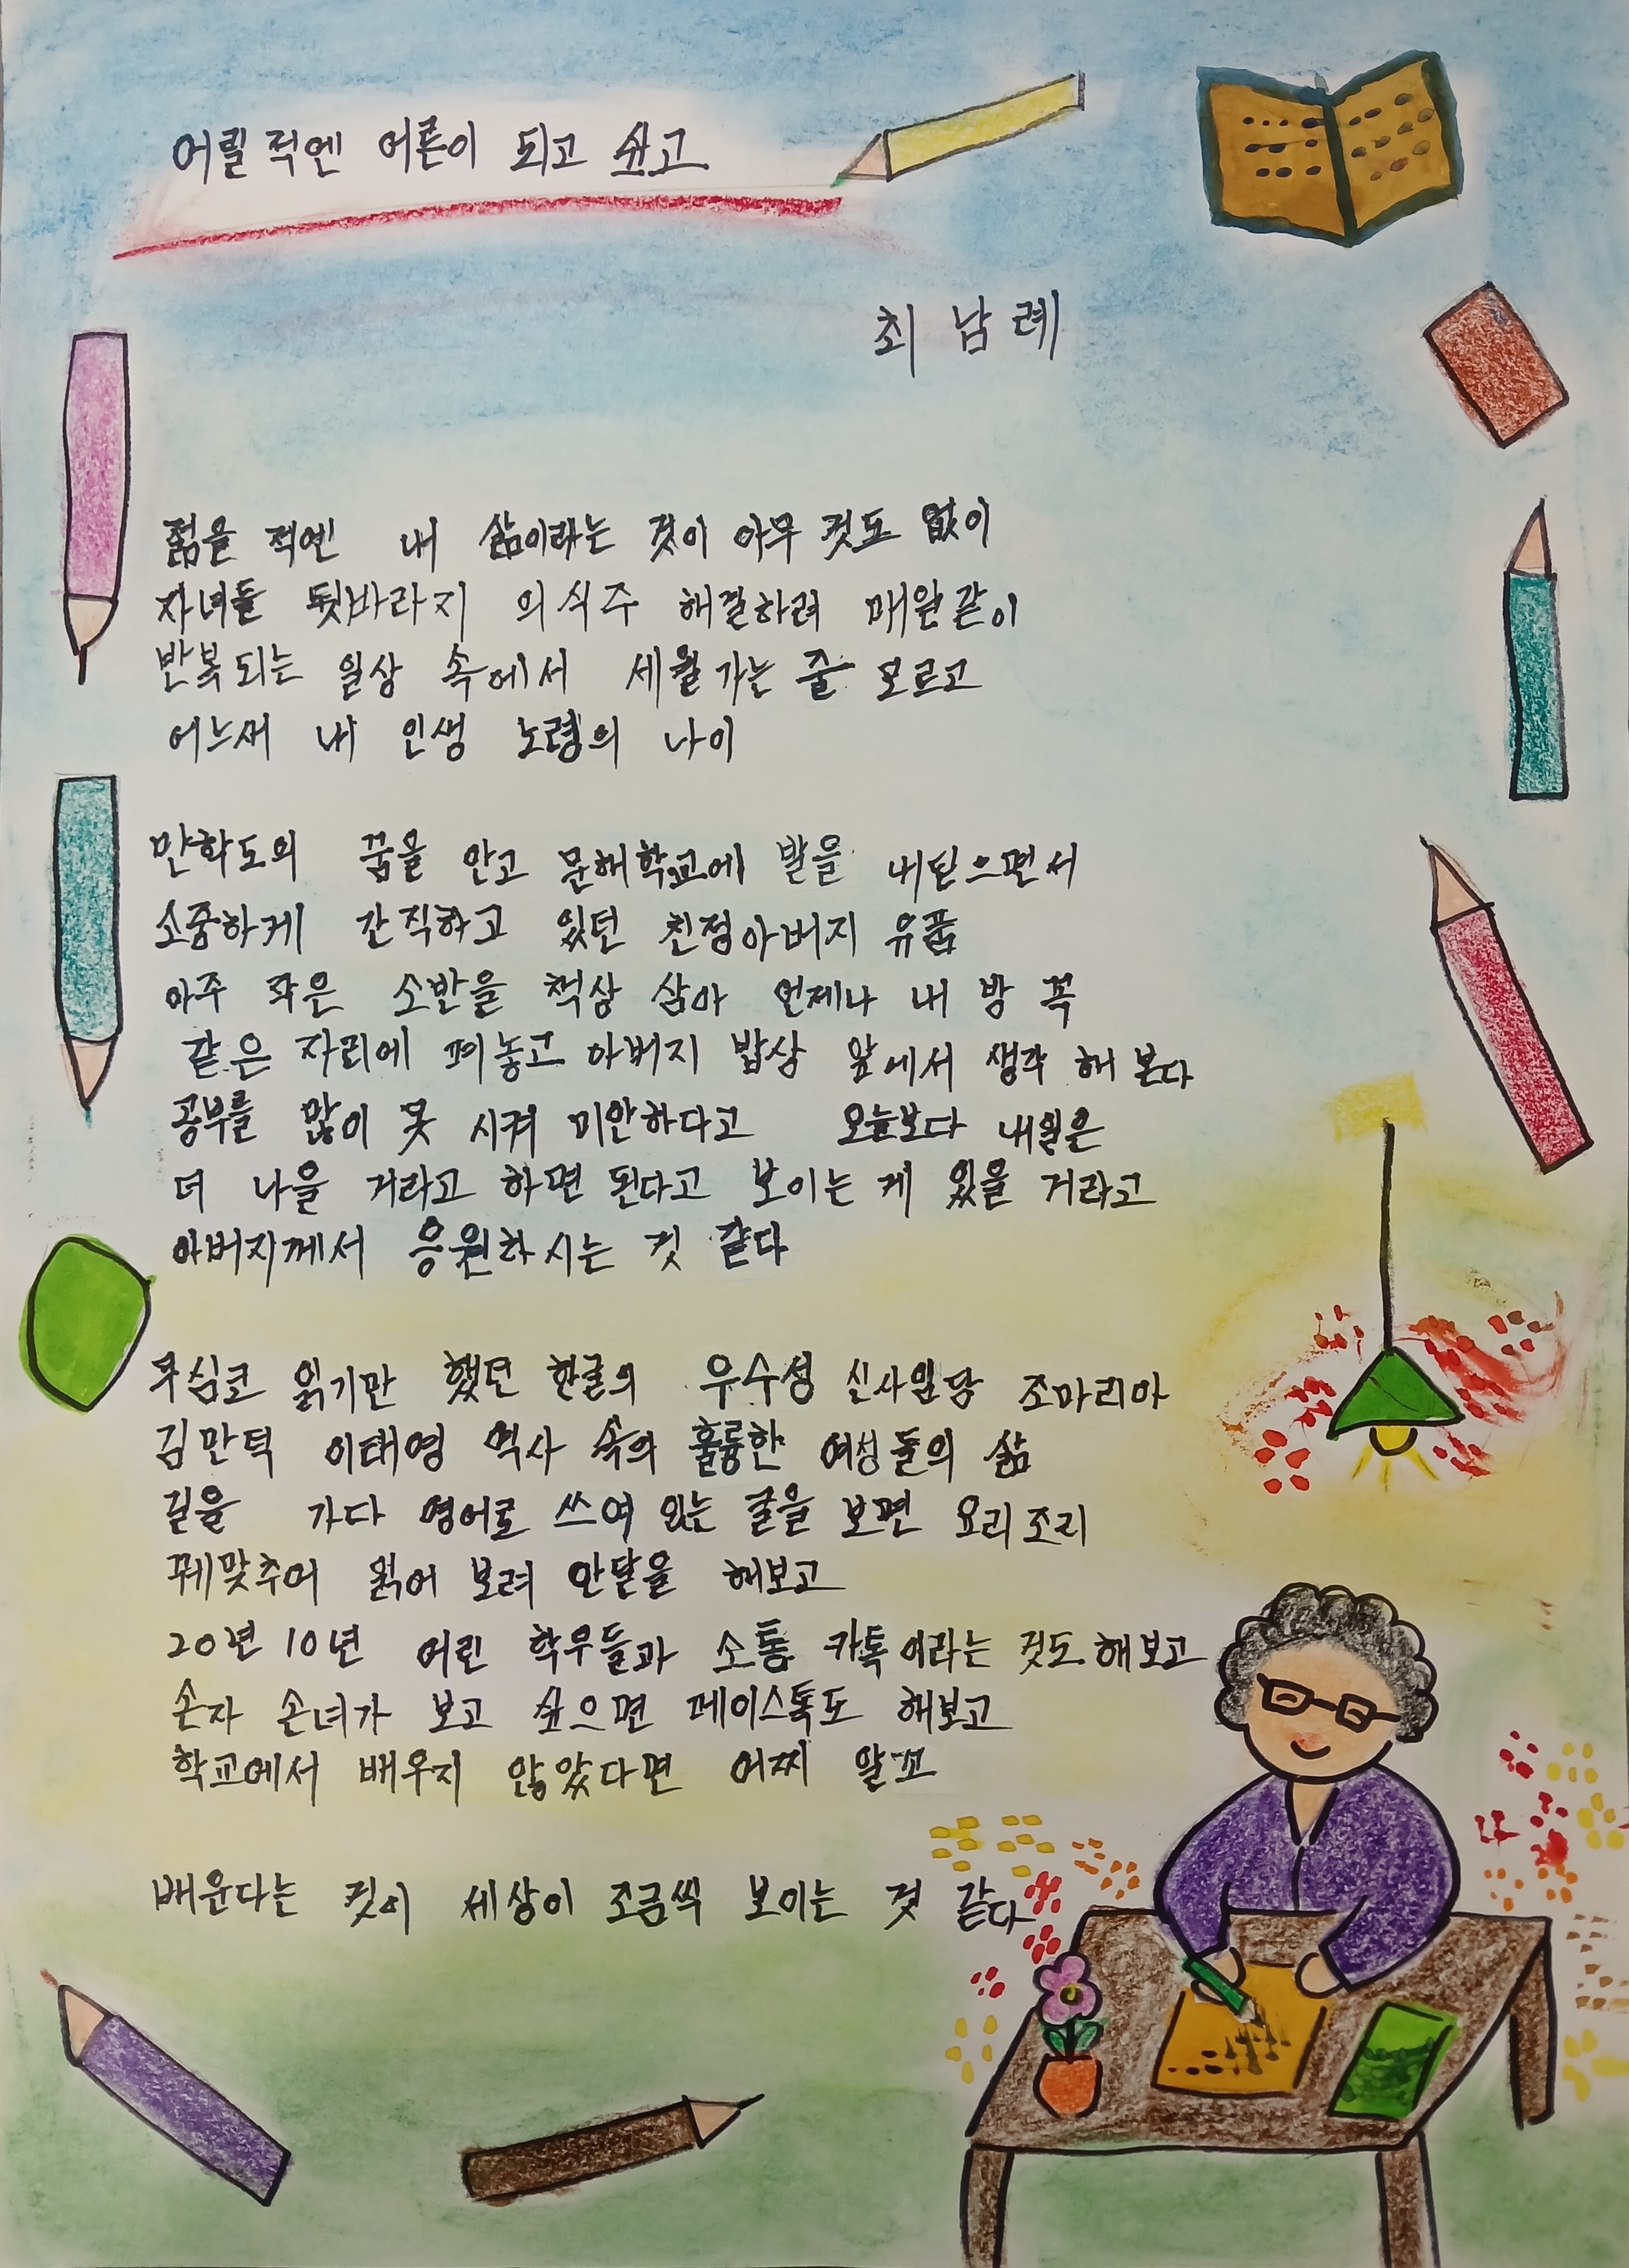 어릴 적엔 어른이 되고 싶고
최 남 례
젊을 적엔 내 삶이라는 것이 아무 것도 없이
자녀들 뒷바라지 의식주 해결하려 매일같이
반복되는 일상 속에서 세월 가는 줄 모르고
어느새 내 인생 노령의 나이
만학도의 꿈을 안고 문해학교에 발을 내딛으면서
소중하게 간직하고 있던 친정아버지 유품
아주 작은 소반을 책상 삼아 언제나 내 방 꼭
같은 자리에 펴놓고 아버지 밥상 앞에서 생각 해 본다
공부를 많이 못 시켜 미안하다고 오늘보다 내일은
더 나을 거라고 하면 된다고 보이는 게 있을 거라고
아버지께서 응원하시는 것 같다
무심코 읽기만 했던 한글의 우수성 신사임당 조마리아
김만덕 이태영 역사 속의 훌륭한 여성들의 삶
길을 가다 영어로 쓰여 있는 글을 보면 요리조리
꿰맞추어 읽어 보려 안달을 해보고
20년 10년 어린 학우들과 소통 카톡이라는 것도 해보고
손자 손녀가 보고 싶으면 페이스톡도 해보고
학교에서 배우지 않았다면 어찌 알꼬
배운다는 것이 세상이 조금씩 보이는 것 같다